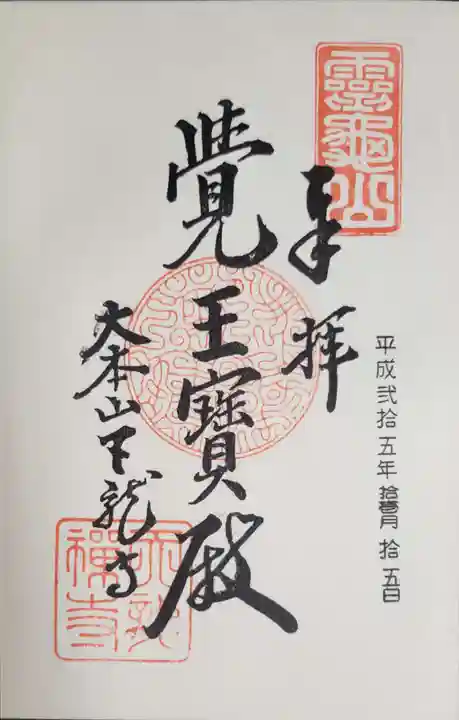 靈龜山
奉拝
平成弐拾五年拾壱月拾五日
覺王寶殿
大本山天龍寺
天龍禅寺